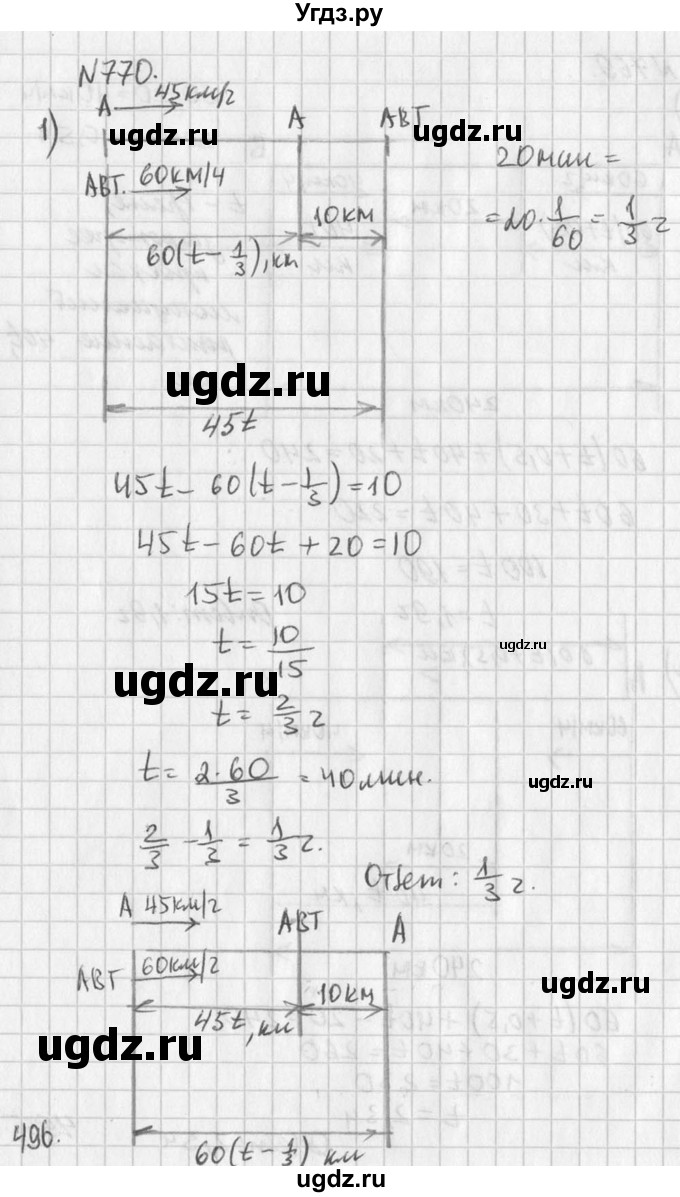 Угдз.ру
N770.
1)
A 45км/г
A
АВТ
ugdz.ru
ugdz.ru
20мин =
АВТ. 60км/ч
10км
=20·1/60=1/3 г
60(t-1/3), км
ugdz.ru
45t
45t-60(t-1/3)=10
45t-60t+20=10
15t=10
t=10/15
ugdz.ru
ugdz.ru
t=2/3 г
t=2·60/3=40мин.
ugdz.ru
2/3-1/3=1/3 г.
Ответ: 1/3 г.
A 45км/г
АВТ
A
АВТ
60км/г
ugdz.ru
10км
45t, км
ugdz.ru
496.
60(t-1/3) км
ugdz.ru